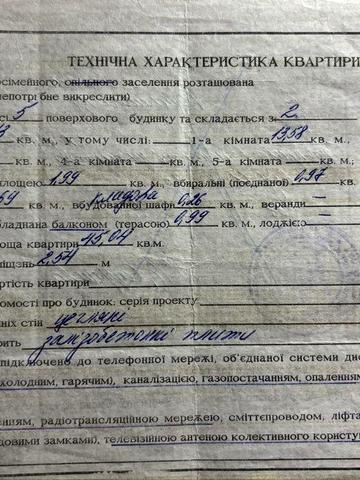 ТЕХНІЧНА ХАРАКТЕРИСТИКА КВАРТИРИ
осімейного, спільного заселення розташована
непотрібне викреслити)
5 поверхового будинку та складається з 2
кв. м., у тому числі: 1-а кімната 13,58 кв. м.,
кв. м., 4-а кімната — кв. м., 5-а кімната — кв. м.;
площею 1,99 кв. м., вбиральні (поєднаної) 0,97 кв.
кв. м., вбудованої шафи кладова 0,26 кв. м., веранди —
бладнана балконом (терасою) 0,99 кв. м., лоджією —
оща квартири 45,04 кв.м.
міщень 2,54 м
артість квартири
домості про будинок: серія проекту
ніх стін цегляні
рить залізобетонні плити
підключено до телефонної мережі, об'єднаної системи дис
холодним, гарячим), каналізацією, газопостачанням, опаленням
енням, радіотрансляційною мережею, сміттєпроводом, ліфта
довими замками), телевізійною антеною колективного користу